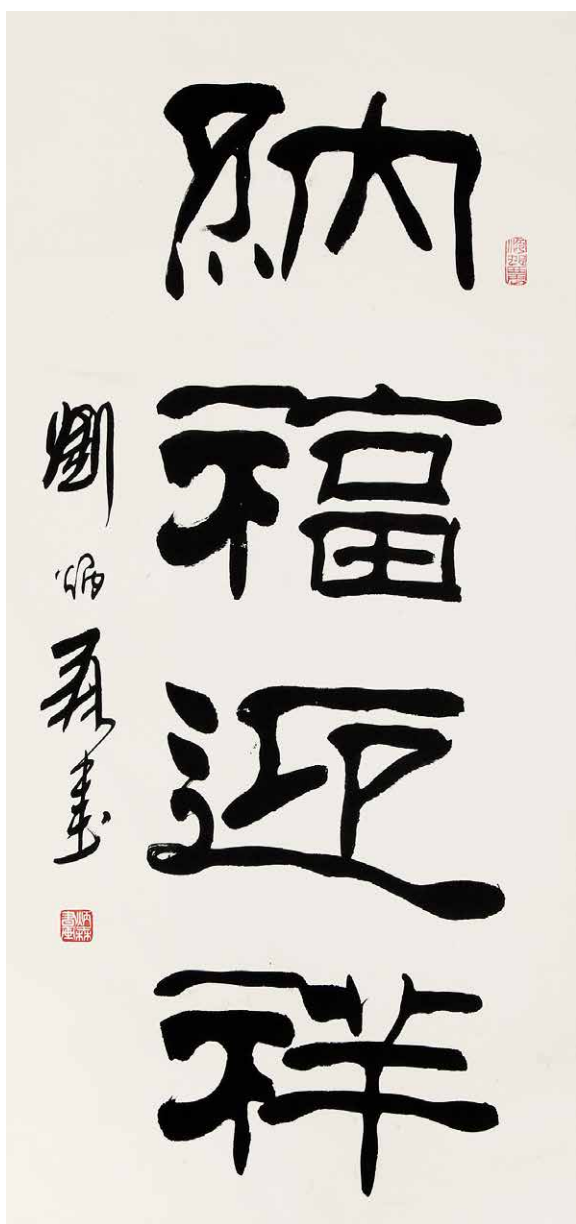 納福迎祥
劉炳森書